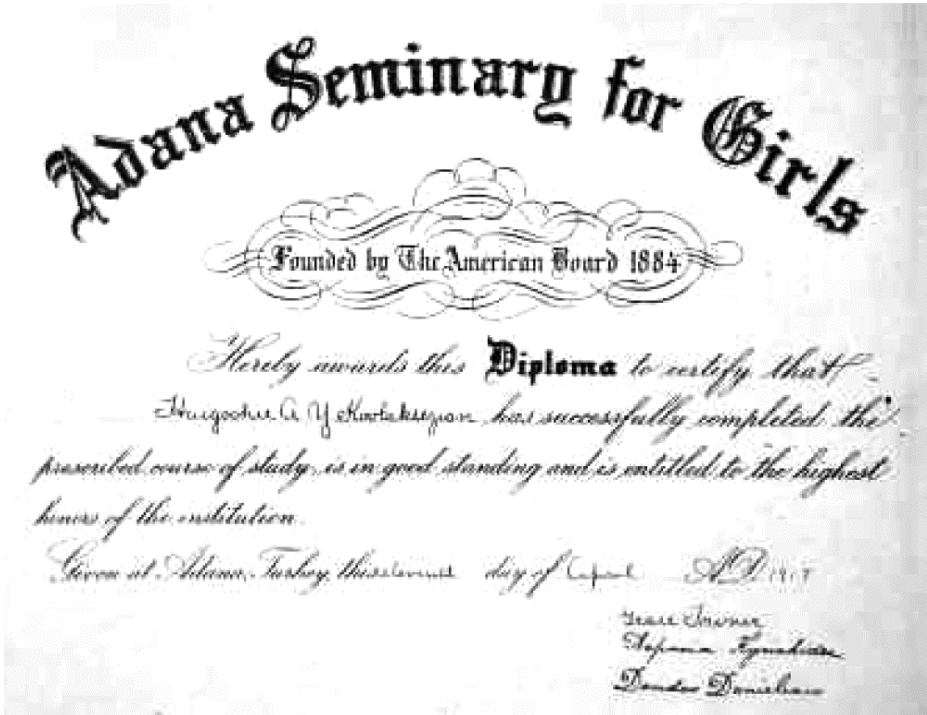 Adana Seminary for Girls
Founded by The American Board 1884
Hereby awards this Diploma to certify that
A Y has successfully completed the
prescribed course of study, is in good standing and is entitled to the highest
honors of the institution.
Given at Adana, Turkey, this day of April A.D. 191
Grace Towner